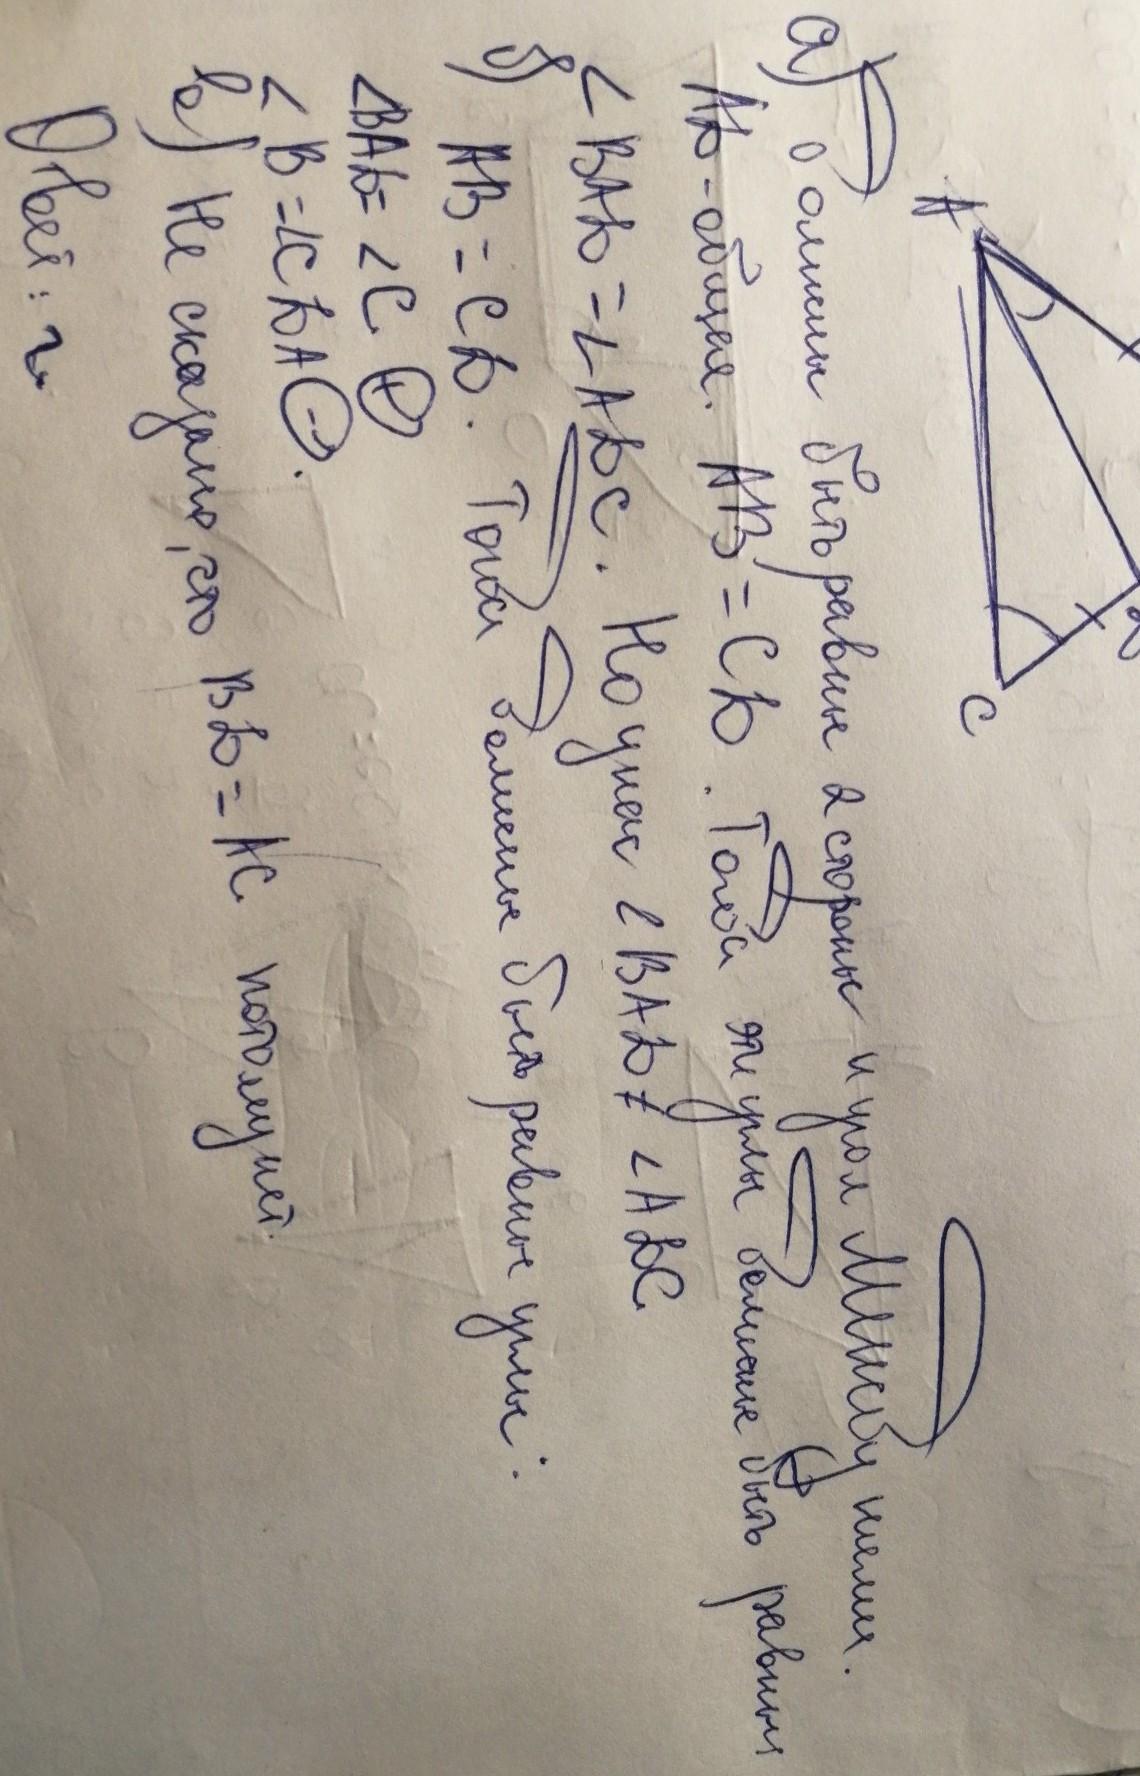 A
D
C
а) должны быть равны 2 стороны и угол между ними.
AD - общая. AB = CD. Тогда эти углы должны быть равны
< BAD = < ADC. Но у нас < BAD ≠ < ADC
б) AB = CD. Тогда должны быть равные углы:
<BAD = <C (+)
<B = <CDA (-).
в) Не сказано, что BD = AC. потому нет.
Ответ: г.